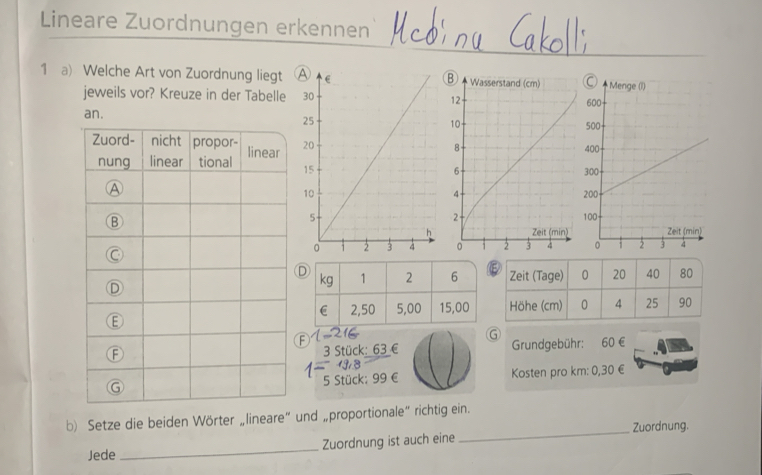 Lineare Zuordnungen erkennen
Medina Cakolli
1 a) Welche Art von Zuordnung liegt
jeweils vor? Kreuze in der Tabelle
an.
Zuord-
nung
nicht
linear
propor-
tional
linear
A
B
C
D
E
F
G
A
€
30
25
20
15
10
5
0 1 2 3 4
h
B
Wasserstand (cm)
12
10
8
6
4
2
0 1 2 3 4
Zeit (min)
C
Menge (l)
600
500
400
300
200
100
0 1 2 3 4
Zeit (min)
D
kg 1 2 6
€ 2,50 5,00 15,00
E
Zeit (Tage) 0 20 40 80
Höhe (cm) 0 4 25 90
F
3 Stück: 63 €
1=
5 Stück: 99 €
G
Grundgebühr: 60 €
Kosten pro km: 0,30 €
b) Setze die beiden Wörter „lineare" und „proportionale" richtig ein.
Jede ____ Zuordnung ist auch eine ____ Zuordnung.